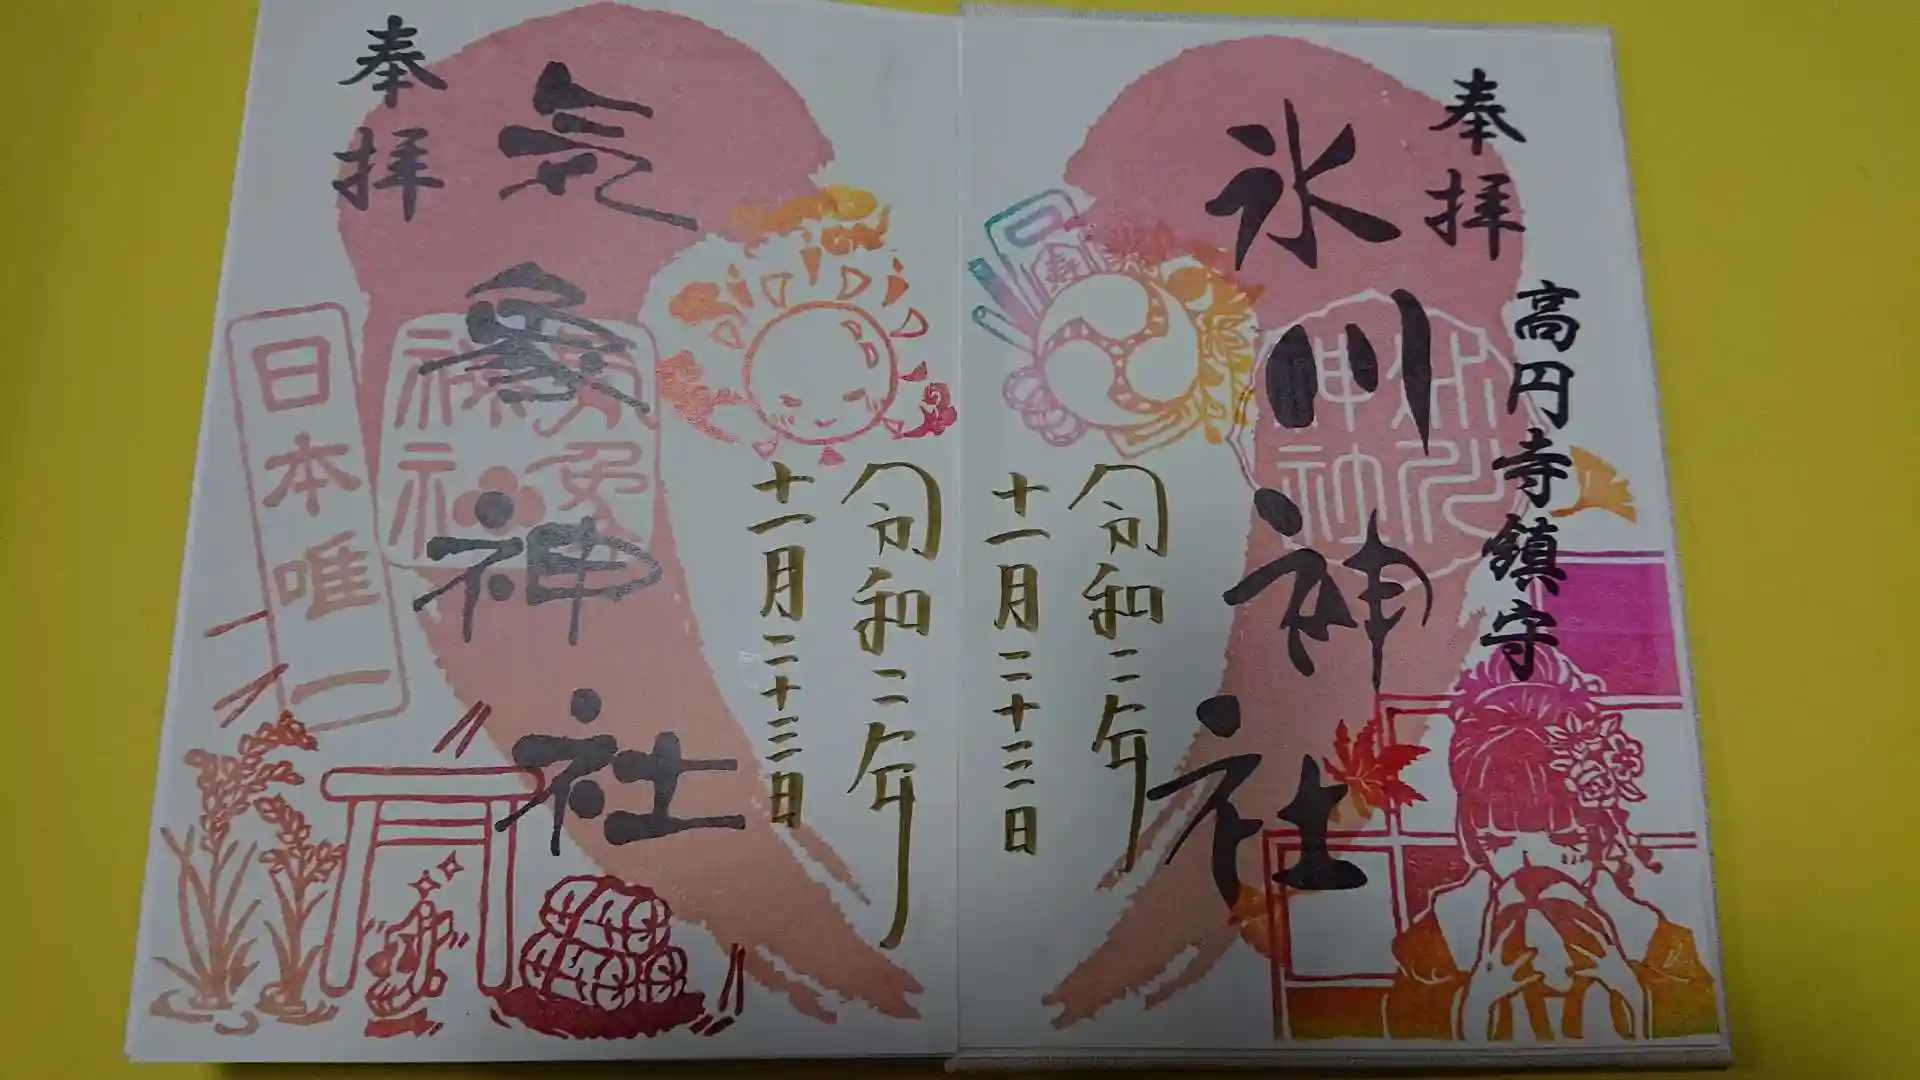 奉拝
高円寺鎮守
氷川神社
令和二年
十一月二十三日
奉拝
気象神社
日本唯一
令和二年
十一月二十三日